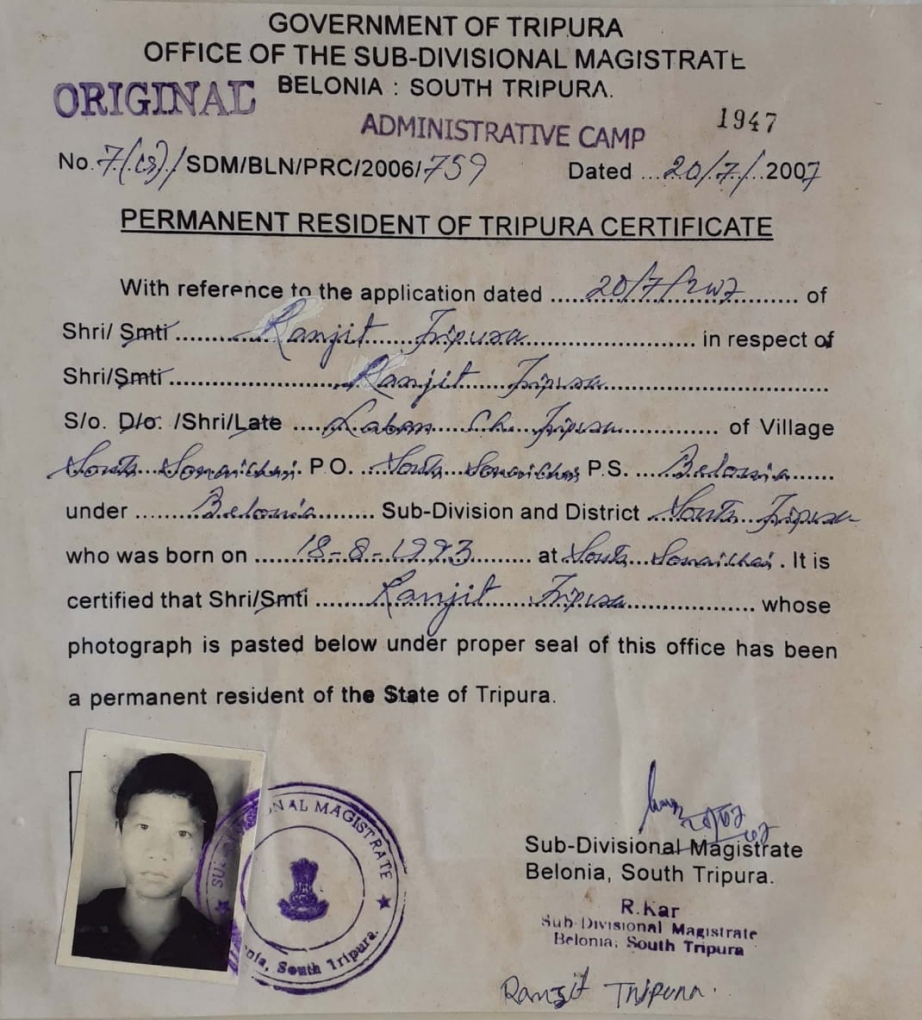 GOVERNMENT OF TRIPURA
OFFICE OF THE SUB-DIVISIONAL MAGISTRATE
BELONIA : SOUTH TRIPURA.
ORIGINAL
ADMINISTRATIVE CAMP
1947
No. 7(cs)/SDM/BLN/PRC/2006/759 Dated ...20/7/..2007
PERMANENT RESIDENT OF TRIPURA CERTIFICATE
With reference to the application dated .....20/7/2007........... of
Shri/ Smti ..............Ranjit Tripura........................... in respect of
Shri/Smti...........................Ranjit Tripura....................................
S/o. D/o. /Shri/Late .... Ch. Tripura................ of Village
South Sonaichari. P.O. ..South Sonaichari P.S. ...Belonia......
under .........Belonia......... Sub-Division and District South Tripura
who was born on ......18-8-1993............... at South Sonaichari. It is
certified that Shri/Smti .........Ranjit Tripura..................... whose
photograph is pasted below under proper seal of this office has been
a permanent resident of the State of Tripura.
SUB-DIVISIONAL MAGISTRATE
Belonia, South Tripura.
Sub-Divisional Magistrate
Belonia, South Tripura.
R.Kar
Sub-Divisional Magistrate
Belonia, South Tripura
Ranjit Tripura.